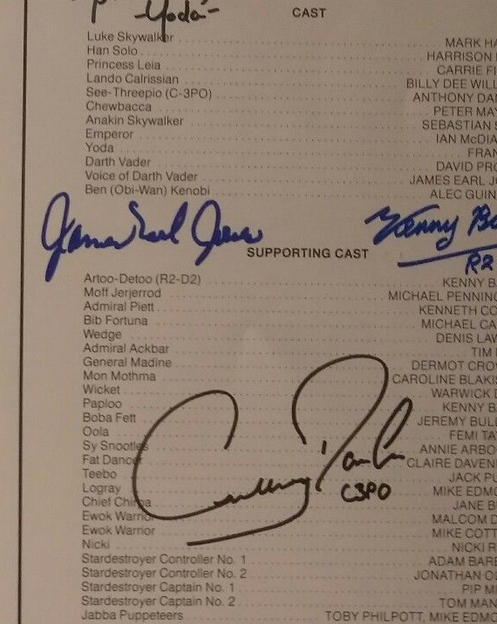 -Yoda-
CAST
Luke Skywalker MARK HA
Han Solo HARRISON
Princess Leia CARRIE FI
Lando Calrissian BILLY DEE WILL
See-Threepio (C-3PO) ANTHONY DA
Chewbacca PETER MAY
Anakin Skywalker SEBASTIAN S
Emperor IAN McDIA
Yoda FRAN
Darth Vader DAVID PRO
Voice of Darth Vader JAMES EARL J
Ben (Obi-Wan) Kenobi ALEC GUIN
James Earl Jones Kenny Ba
SUPPORTING CAST R2
Artoo-Detoo (R2-D2) KENNY B
Moff Jerjerrod MICHAEL PENNING
Admiral Piett KENNETH CO
Bib Fortuna MICHAEL CA
Wedge DENIS LAW
Admiral Ackbar TIM
General Madine DERMOT CROW
Mon Mothma CAROLINE BLAKIS
Wicket WARWICK D
Paploo KENNY B
Boba Fett JEREMY BULL
Oola FEMI TA
Sy Snootles ANNIE ARBO
Fat Dancer CLAIRE DAVEN
Teebo JACK PU
Logray MIKE EDMO
Chief Chirpa JANE B
Anthony Daniels
C3PO
Ewok Warrior MALCOM D
Ewok Warrior MIKE COTT
Nicki NICKI R
Stardestroyer Controller No. 1 ADAM BARE
Stardestroyer Controller No. 2 JONATHAN O
Stardestroyer Captain No. 1 PIP M
Stardestroyer Captain No. 2 TOM MAN
Jabba Puppeteers TOBY PHILPOTT, MIKE EDMO